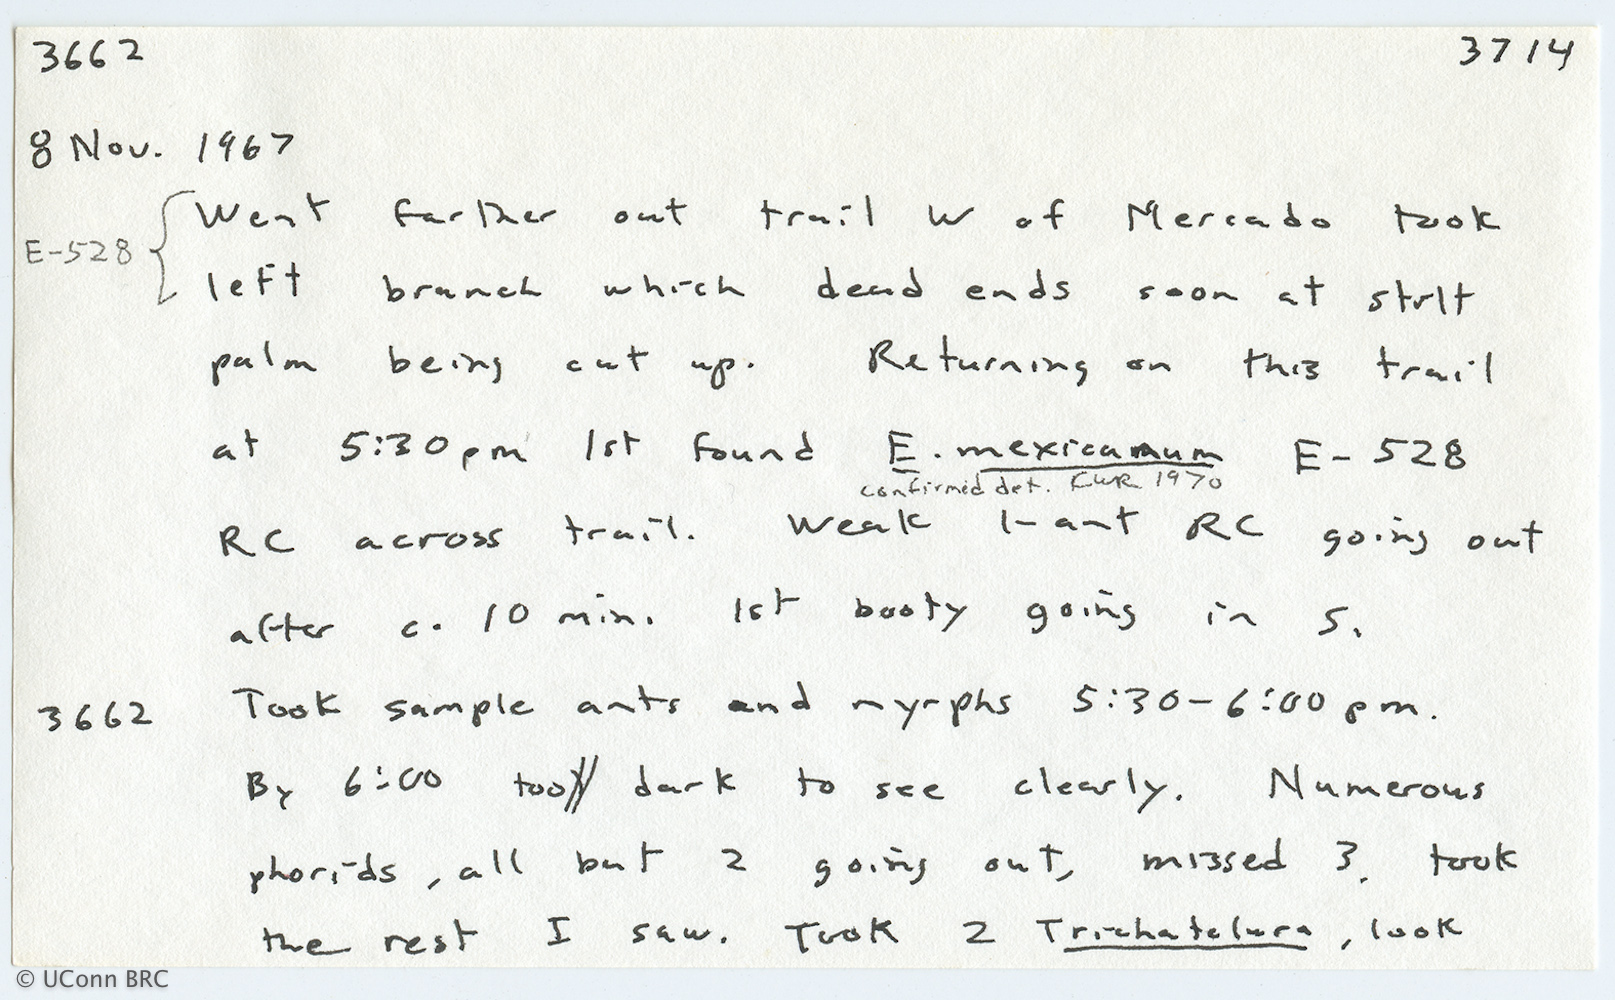 3662 3714
8 Nov. 1967
Went farther out trail W of Mercado took
E-528
left branch which dead ends soon at stilt
palm being cut up. Returning on this trail
at 5:30pm 1st found E. mexicanum E-528
confirmed det. CWR 1970
RC across trail. Weak 1-ant RC going out
after c. 10 min. 1st booty going in S.
3662 Took sample ants and myrphs 5:30-6:00 pm.
By 6:00 too dark to see clearly. Numerous
phorids, all but 2 going out, missed 3, took
the rest I saw. Took 2 Trichatelura, look
© UConn BRC